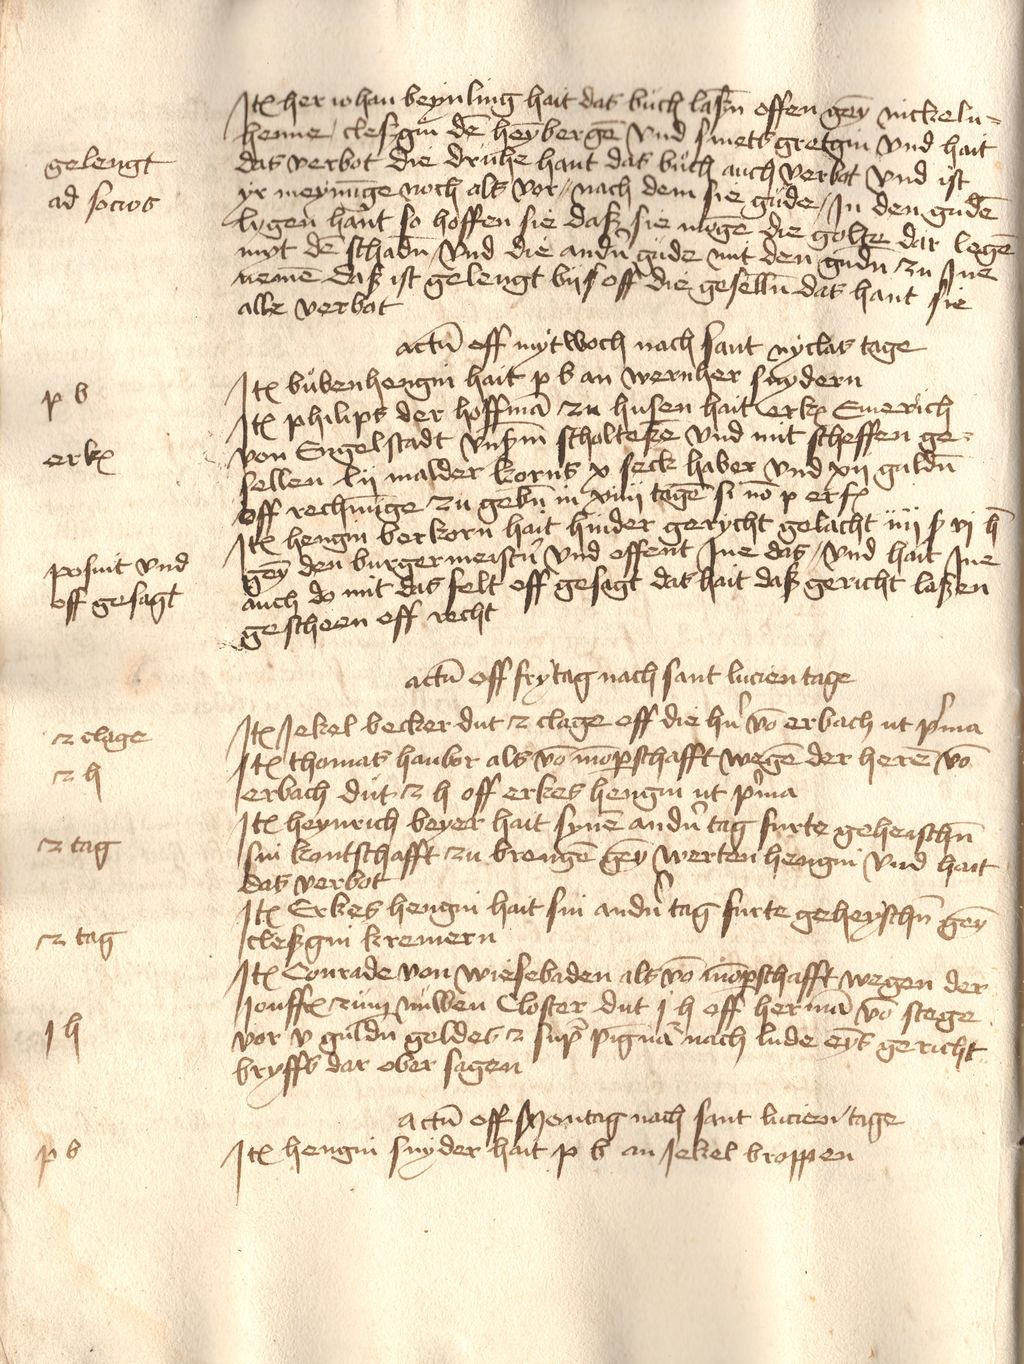 Itẽ her iohan beynling hait das buch laißn offen geẏ nickeln=
henne clesgin dẽ heẏbergẽ vnd smets gretgin vnd hait
gelengt ad socios
das verbot die druhe hant das buch auch verbot vnd ist
yr meynũge noch als vor / nach dem sie gude / In den gudẽ
lygen hañt so hoffen sie daß sie mogẽ die golte dar legẽ
myt dẽ schadñ / vnd die andñ gude mit den gudñ zu Ine
nemẽ daß ist gelengt biß off die geselln das hant sie
alle verbot
actũ off mytwoch nach sant nyclas tage
p b
Itẽ bubenhengin hait p b an wernher snydern
erkẽ
Itẽ philips der hoffmã zu husen hait erkẽ Emerich
von Engelstadt vnßm scholteßẽ vnd mit scheffen ge=
sellen lij malder korns x seck haber vnd xij guldñ
off rechnũge zu gebñ in xiiij tagẽ si nõ p erfẽ
posuit vnd off gesagt
Itẽ hengin berkorn hait hinder gerycht gelacht iiij ß vj h
geẏ den burgermeistñ vnd offent Ine das / vnd hait Ine
auch do mit das felt off gesagt das hait daß gericht laßen
gescheen off recht
actũ off frytag nach sant lucien tage
2 clage
Itẽ Jekel becker dut 2 clage off die hñ võ erbach ut p͛ma
2 h
Itẽ thomas haubor als võ mõpschafft wegẽ der herẽ võ
erbach dut 2 h off erkes hengin ut p͛ma
2 tag
Itẽ heynrich beyer hait synẽ andñ tag furte geheischñ
sin kontschafft zu brengẽ geẏ werten hengin vnd hait
das verbot
2 tag
Itẽ Erkes hengin hait sin andñ tag furte geheyschñ geẏ
cleßgin kremern
1 h
Itẽ Conrade von wiesebaden als võ mõpschafft wegen der
Jonffẽ zum nuwen Closter dut 1 h off hermã võ stege
vor v guldñ geldes 2 sup͛ pignã nach lude eyß gericht
bryffs dar ober sagen
actũ off Montag nach sant lucien tage
p b
Itẽ hengin snyder hait p b an Jekel broppen